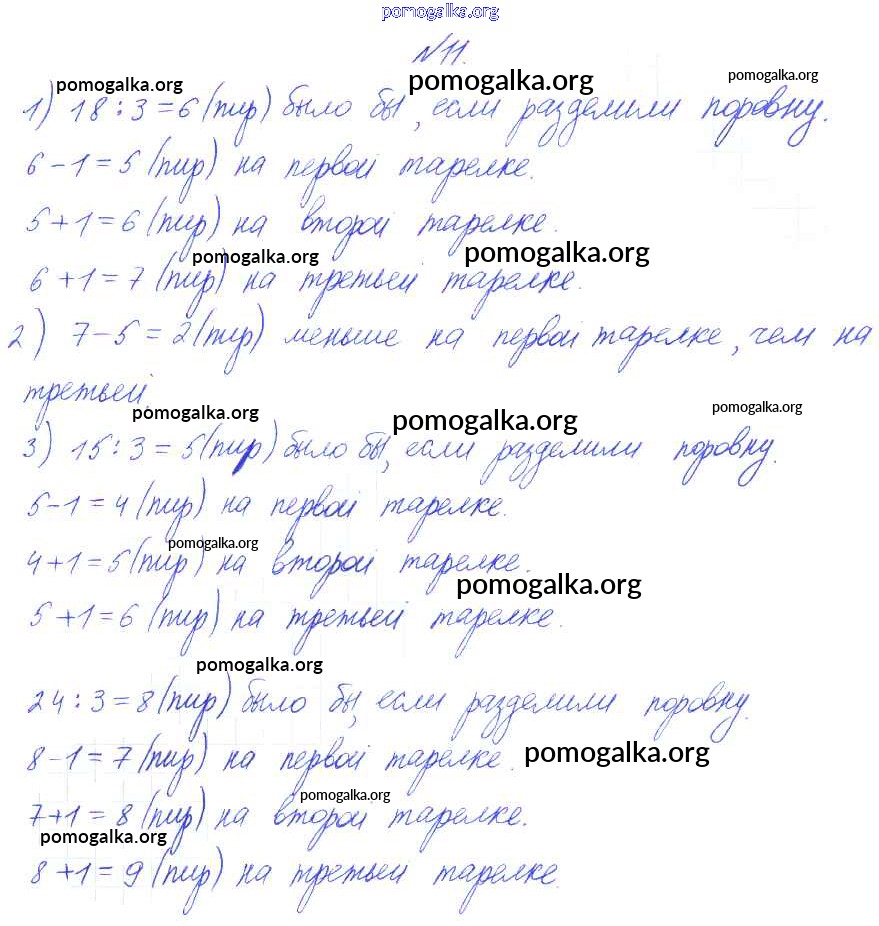 pomogalka.org
№11.
pomogalka.org pomogalka.org pomogalka.org
1) 18 : 3 = 6 (пир) было бы, если разделили поровну.
6 - 1 = 5 (пир) на первой тарелке.
5 + 1 = 6 (пир) на второй тарелке.
pomogalka.org pomogalka.org
6 + 1 = 7 (пир) на третьей тарелке.
2) 7 - 5 = 2 (пир) меньше на первой тарелке, чем на
третьей
pomogalka.org pomogalka.org pomogalka.org
3) 15 : 3 = 5 (пир) было бы, если разделили поровну.
5 - 1 = 4 (пир) на первой тарелке.
pomogalka.org
4 + 1 = 5 (пир) на второй тарелке.
pomogalka.org
5 + 1 = 6 (пир) на третьей тарелке.
pomogalka.org
24 : 3 = 8 (пир) было бы, если разделили поровну.
8 - 1 = 7 (пир) на первой тарелке.
pomogalka.org
pomogalka.org
7 + 1 = 8 (пир) на второй тарелке.
pomogalka.org
8 + 1 = 9 (пир) на третьей тарелке.